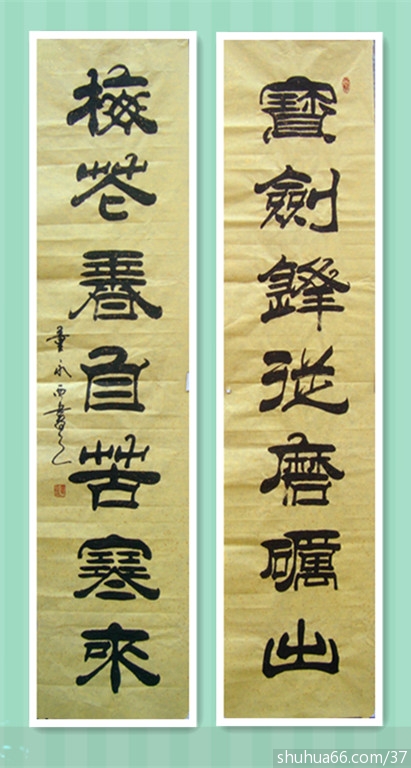 寶劍鋒從磨礪出
梅花香自苦寒來
shuhua66.com/37